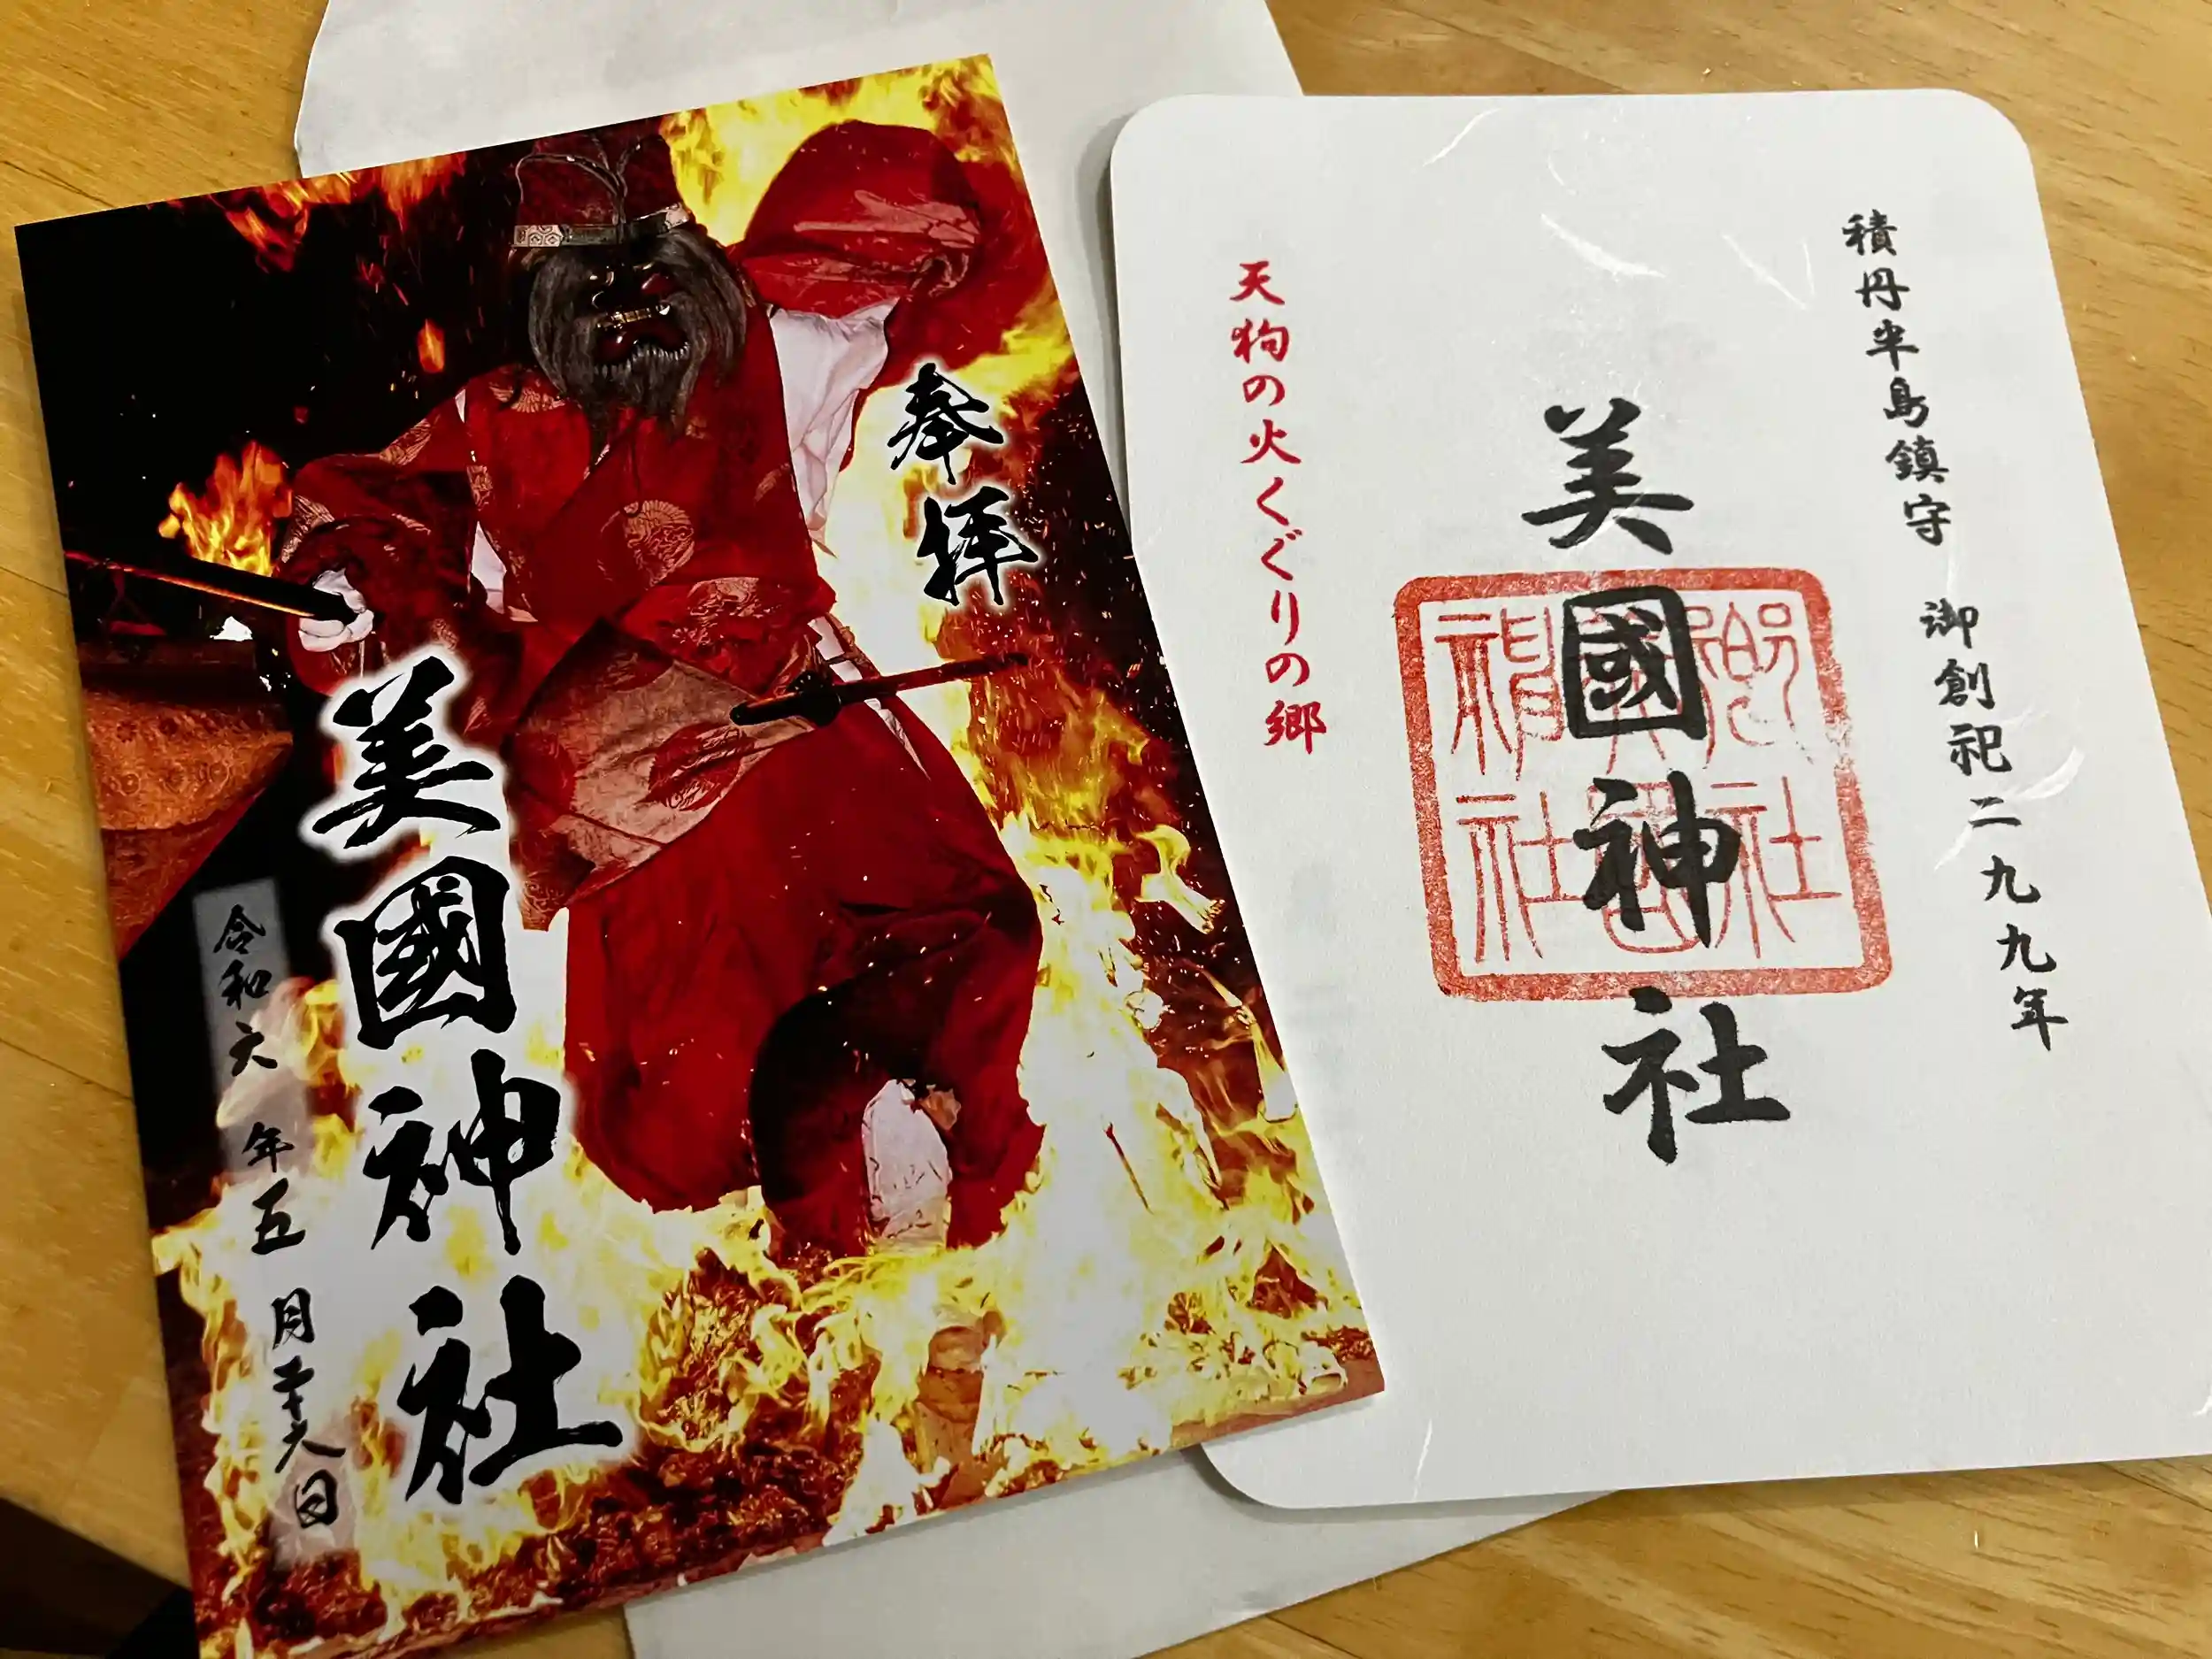 奉拝
美國神社
令和六年五月二十八日
積丹半島鎮守 御創祀二九九年
美國神社
天狗の火くぐりの郷